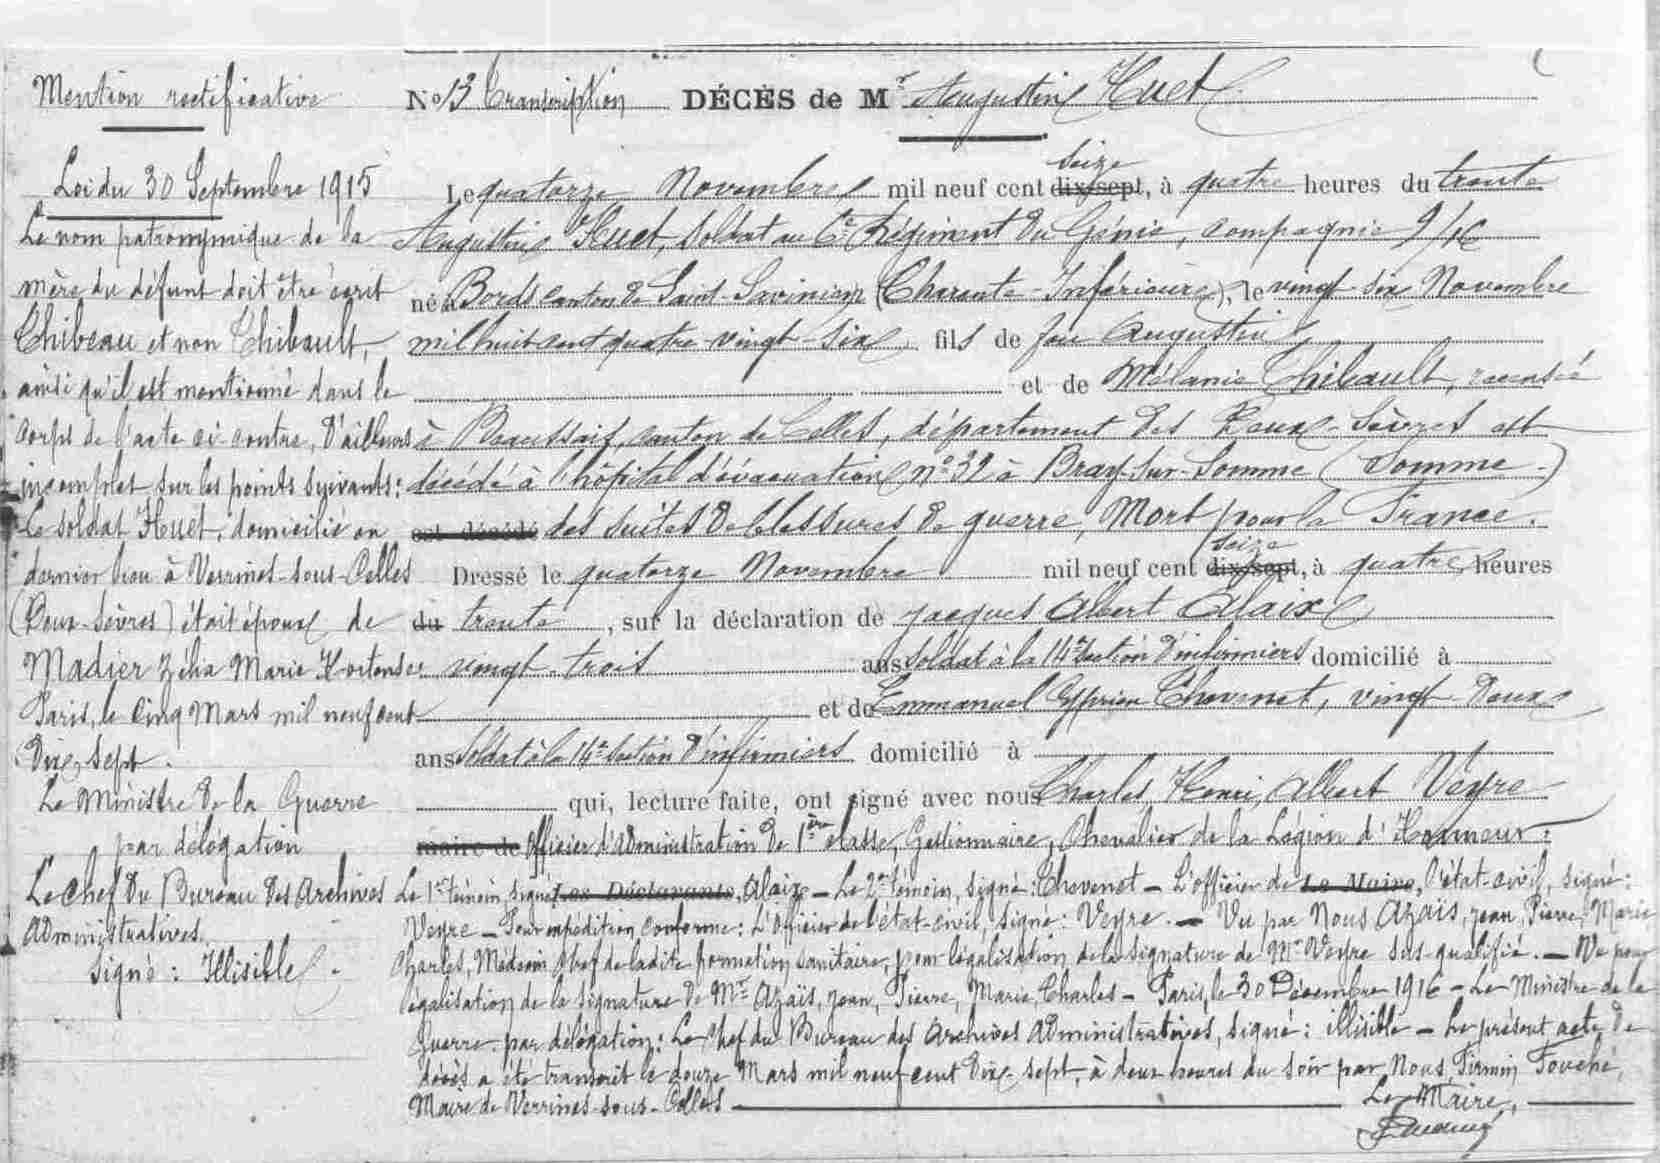 Mention rectificative
Loi du 30 Septembre 1915
Le nom patronymique de la
mère du défunt doit être écrit
Thibeau et non Thibault,
ainsi qu'il est mentionné dans le
corps de l'acte ci contre, d'ailleurs
incomplet sur les points suivants:
Le soldat Huet, domicilié en
dernier lieu à Verrines-sous-Celles
(Deux-Sèvres) était époux de
Madier Zélia Marie Hortense
Paris, le Cinq Mars mil neuf cent
Dix sept.
Le Ministre de la Guerre
par délégation
Le Chef du Bureau des Archives
Administratives.
Signé: Illisible
No 13 Transcription DÉCÈS de Mr Augustin Huet
Le quatorze Novembre mil neuf cent dix-sept seize, à quatre heures du trente
Augustin Huet, soldat au 6e Régiment du Génie, compagnie
né à Bords canton de Saint-Savinien (Charente-Inférieure), le vingt six Novembre
mil huit cent quatre vingt-six fils de feu Augustin
et de Mélanie Thibault, recensé
à Beaussais, canton de Celles, département des Deux-Sèvres est
décédé à l'hôpital d'évacuation no 32 à Bray-sur-Somme (Somme)
est décédé des suites de blessures de guerre, Mort pour la France.
Dressé le quatorze Novembre mil neuf cent dix-sept seize, à quatre heures
du trente, sur la déclaration de Jacques Albert Alaix
vingt-trois ans soldat à la 14e Section d'infirmiers domicilié à
et de Emmanuel Cyprien Chevenet, vingt-deux
ans soldat à la 14e section d'infirmiers domicilié à
qui, lecture faite, ont signé avec nous Charles, Henri, Albert Veyre
maire de Officier d'Administration de 1ère classe, Gestionnaire, Chevalier de la Légion d'Honneur:
Le 1er témoin, signé: Les Déclarants, Alaix – Le 2e témoin, signé: Chevenet – L'officier de Le Maire, l'état-civil, signé:
Veyre – Pour expédition conforme: L'Officier de l'état-civil, signé: Veyre. – Vu par Nous Azaïs, Jean, Pierre, Marie
Charles, Médecin Chef de ladite formation sanitaire, pour légalisation de la signature de Mr Veyre sus-qualifié. – Vu pour
légalisation de la signature de Mr Azaïs, Jean, Pierre, Marie, Charles – Paris, le 30 Décembre 1916 – Le Ministre de la
Guerre par délégation: Le Chef du Bureau des Archives Administratives, signé: illisible – Le présent acte de
décès a été transcrit le douze Mars mil neuf cent Dix-sept, à deux heures du soir par Nous, Firmin Fouché,
Maire de Verrines-sous-Celles Le Maire,